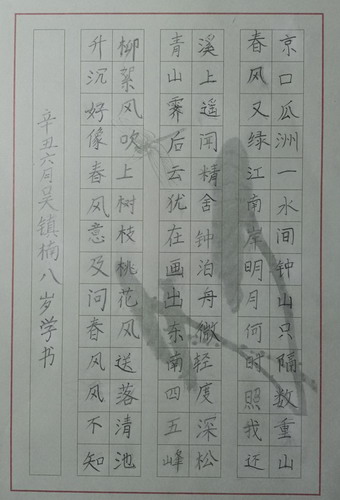 京口瓜洲一水间钟山只隔数重山
春风又绿江南岸明月何时照我还
溪上遥闻精舍钟泊舟微轻度深松
青山霁后云犹在画出东南四五峰
柳絮风吹上树枝桃花风送落清池
升沉好像春风意及问春风风不知
辛丑六月吴镇楠八岁学书